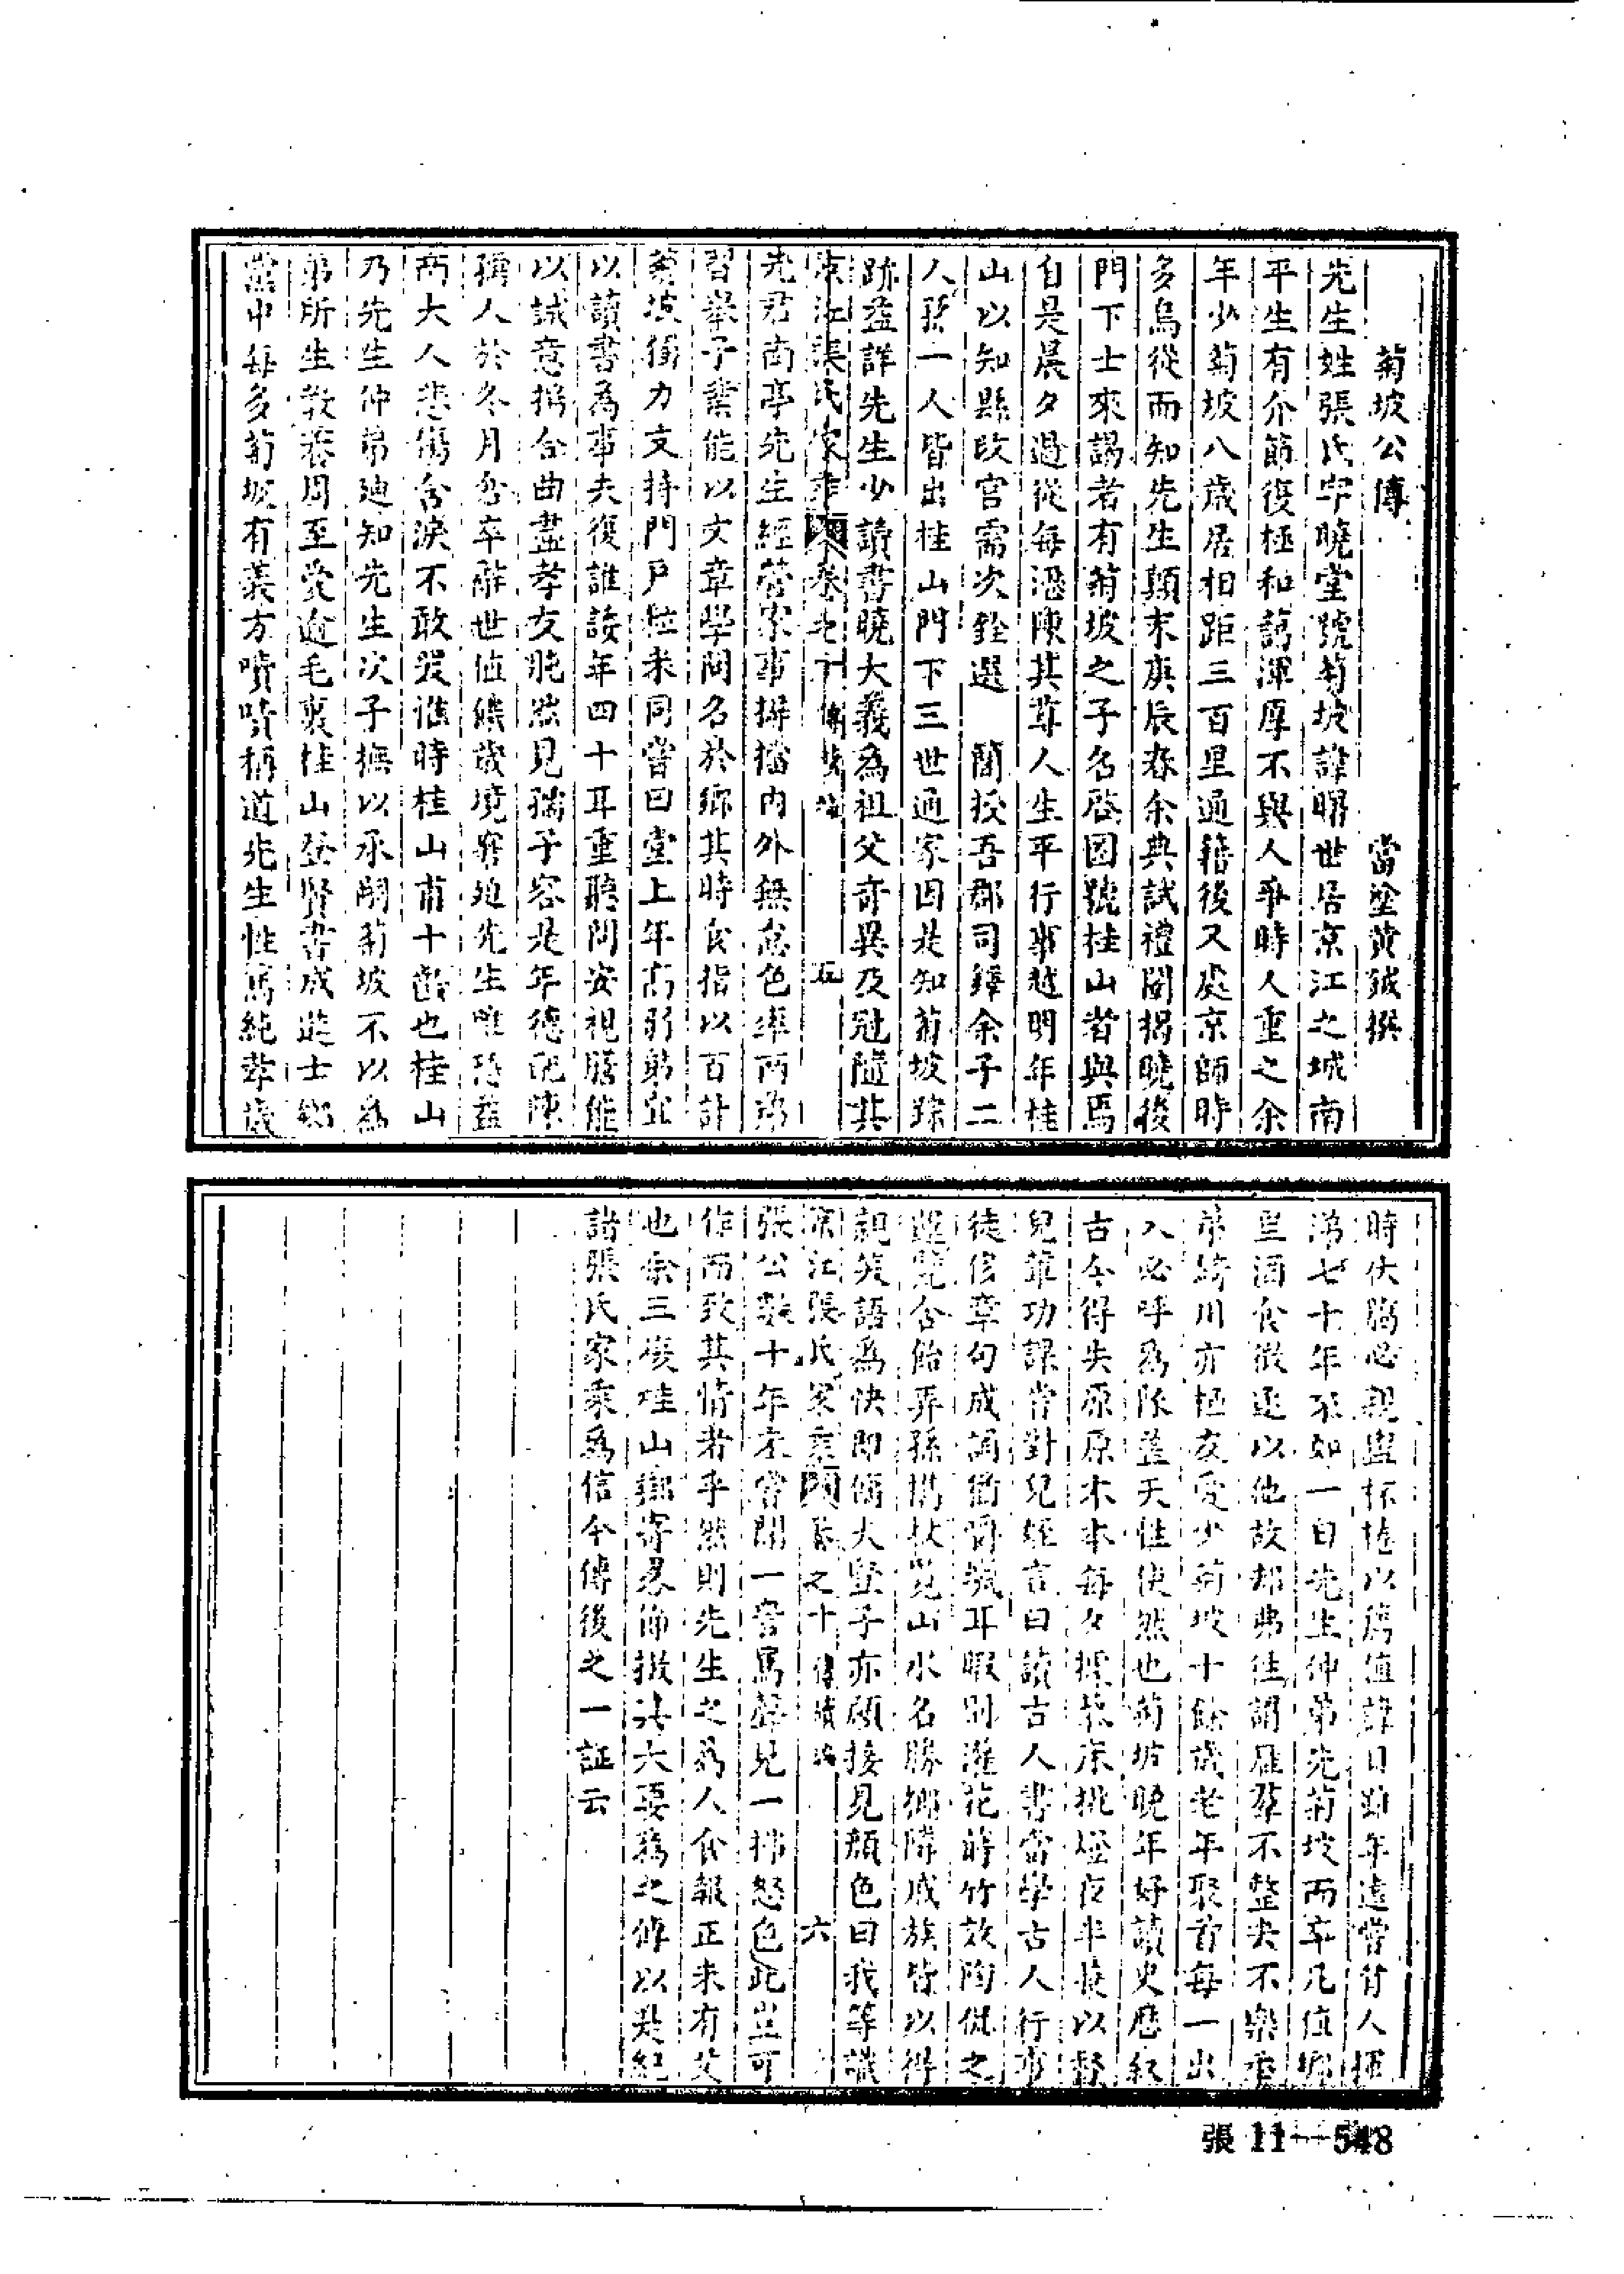 菊坡公傳　當塗黃鉞撰
先生姓張氏字曉堂號菊坡諱明世居京江之城南
平生有介節復極和藹渾厚不與人爭時人重之余
年少菊坡八歲居相距三百里通籍後又處京師時
多烏從而知先生顛末庚辰春余典試禮闈揭曉後
門下士來謁者有菊坡之子名啓圖號桂山者與焉
自是晨夕過從每慇陳其尊人生平行事越明年桂
山以知縣改官需次銓選　簡授吾郡司鐸余子二
人孫一人皆出桂山門下三世通家因是知菊坡踪
跡益詳先生少讀書曉大義為祖父奇異及冠隨其
京江張氏家乘　卷之十　傳贊　五
先君南亭先生經營家事摒擋內外無怠色率兩弟
習舉子業能以文章學問名於鄉其時食指以百計
菊坡獨力支持門戶粒米同嘗曰堂上年高弱弟宜
以讀書為事夫復誰諉年四十耳重聽問安視膳能
以誠意揣合曲盡孝友肫然見孺子容是年德配陳
孺人於冬月忽卒辭世值饑歲境窘迫先生唯恐益
兩大人悲傷含淚不敢哭維時桂山甫十齡也桂山
乃先生仲弟廸知先生次子撫以承嗣菊坡不以為
弟所生教養周至愛逾毛裏桂山登賢書成進士鄉
黨中每多菊坡有義方嘖嘖稱道先生性篤純孝歲
時伏臘必親盥杯棬以薦值諱日雖年遠嘗背人揮
涕七十年來如一日先生仲弟先菊坡而卒凡值鄉
里酒食徵逐以他故却弗往謂雁羣不整夫不樂季
弟 川亦極友愛少菊坡十餘歲老年聚首每一出
入必呼為隊蓋天性使然也菊坡晚年好讀史歷叙
古今得失原原本本每夕擁 床挑燈夜半 以督
兒輩功課嘗對兒姪言曰讀古人書當學古人行事
徒修章句成誦 耳暇則灌花蒔竹效陶侃之
 含飴弄孫携杖 山水名勝鄉隣戚族皆以得
親笑語為快即傭夫豎子亦願接見顏色曰我等識
京江張氏家乘　卷之十　傳贊　六
張公數十年未嘗聞一詈罵聲見一拂怒色此豈可
作而致其情者乎然則先生之為人食報正未有艾
也余三復桂山 寄 撮其大要為之傳以是紀
諸張氏家乘為信今傳後之一証云
張11—548